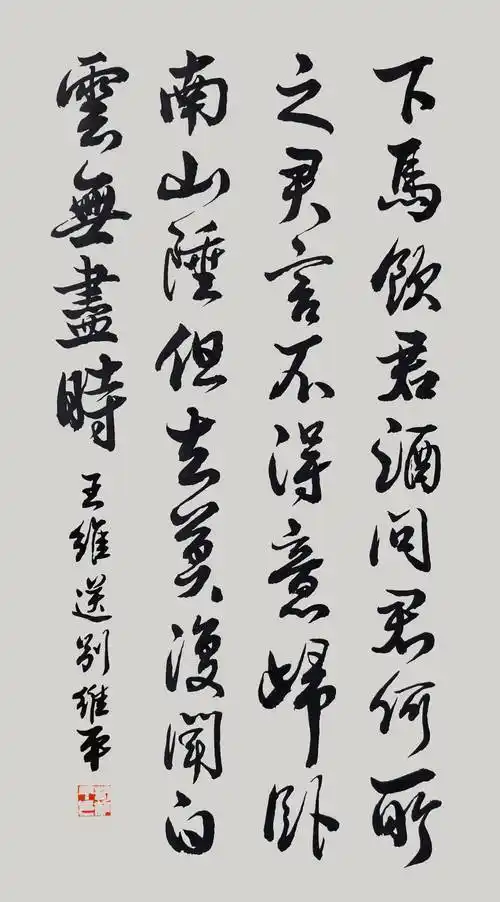 下馬飲君酒問君何所
之君言不得意歸卧
南山陲但去莫復聞白
雲無盡時
王維送別維平